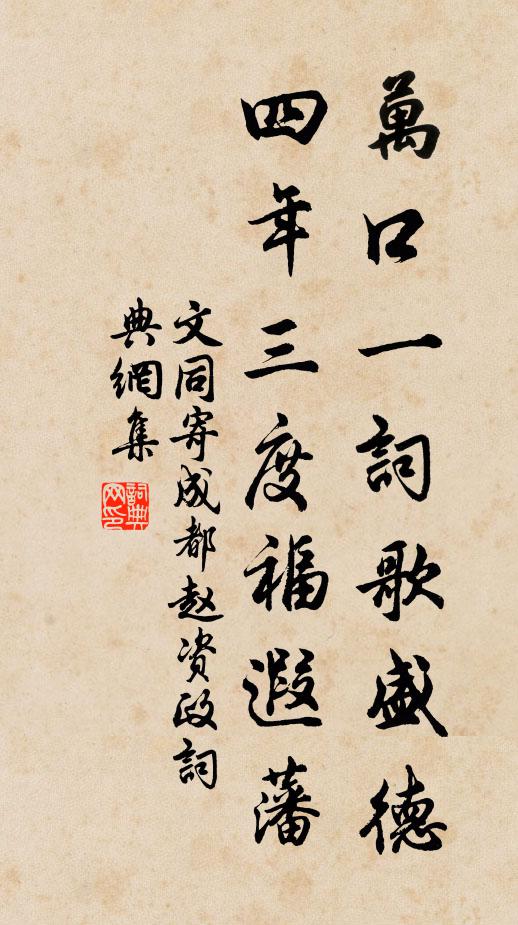 萬口一詞歌盛德
四年三度福遐藩
文同寄成都赵资政詞
典網集
詞典网印